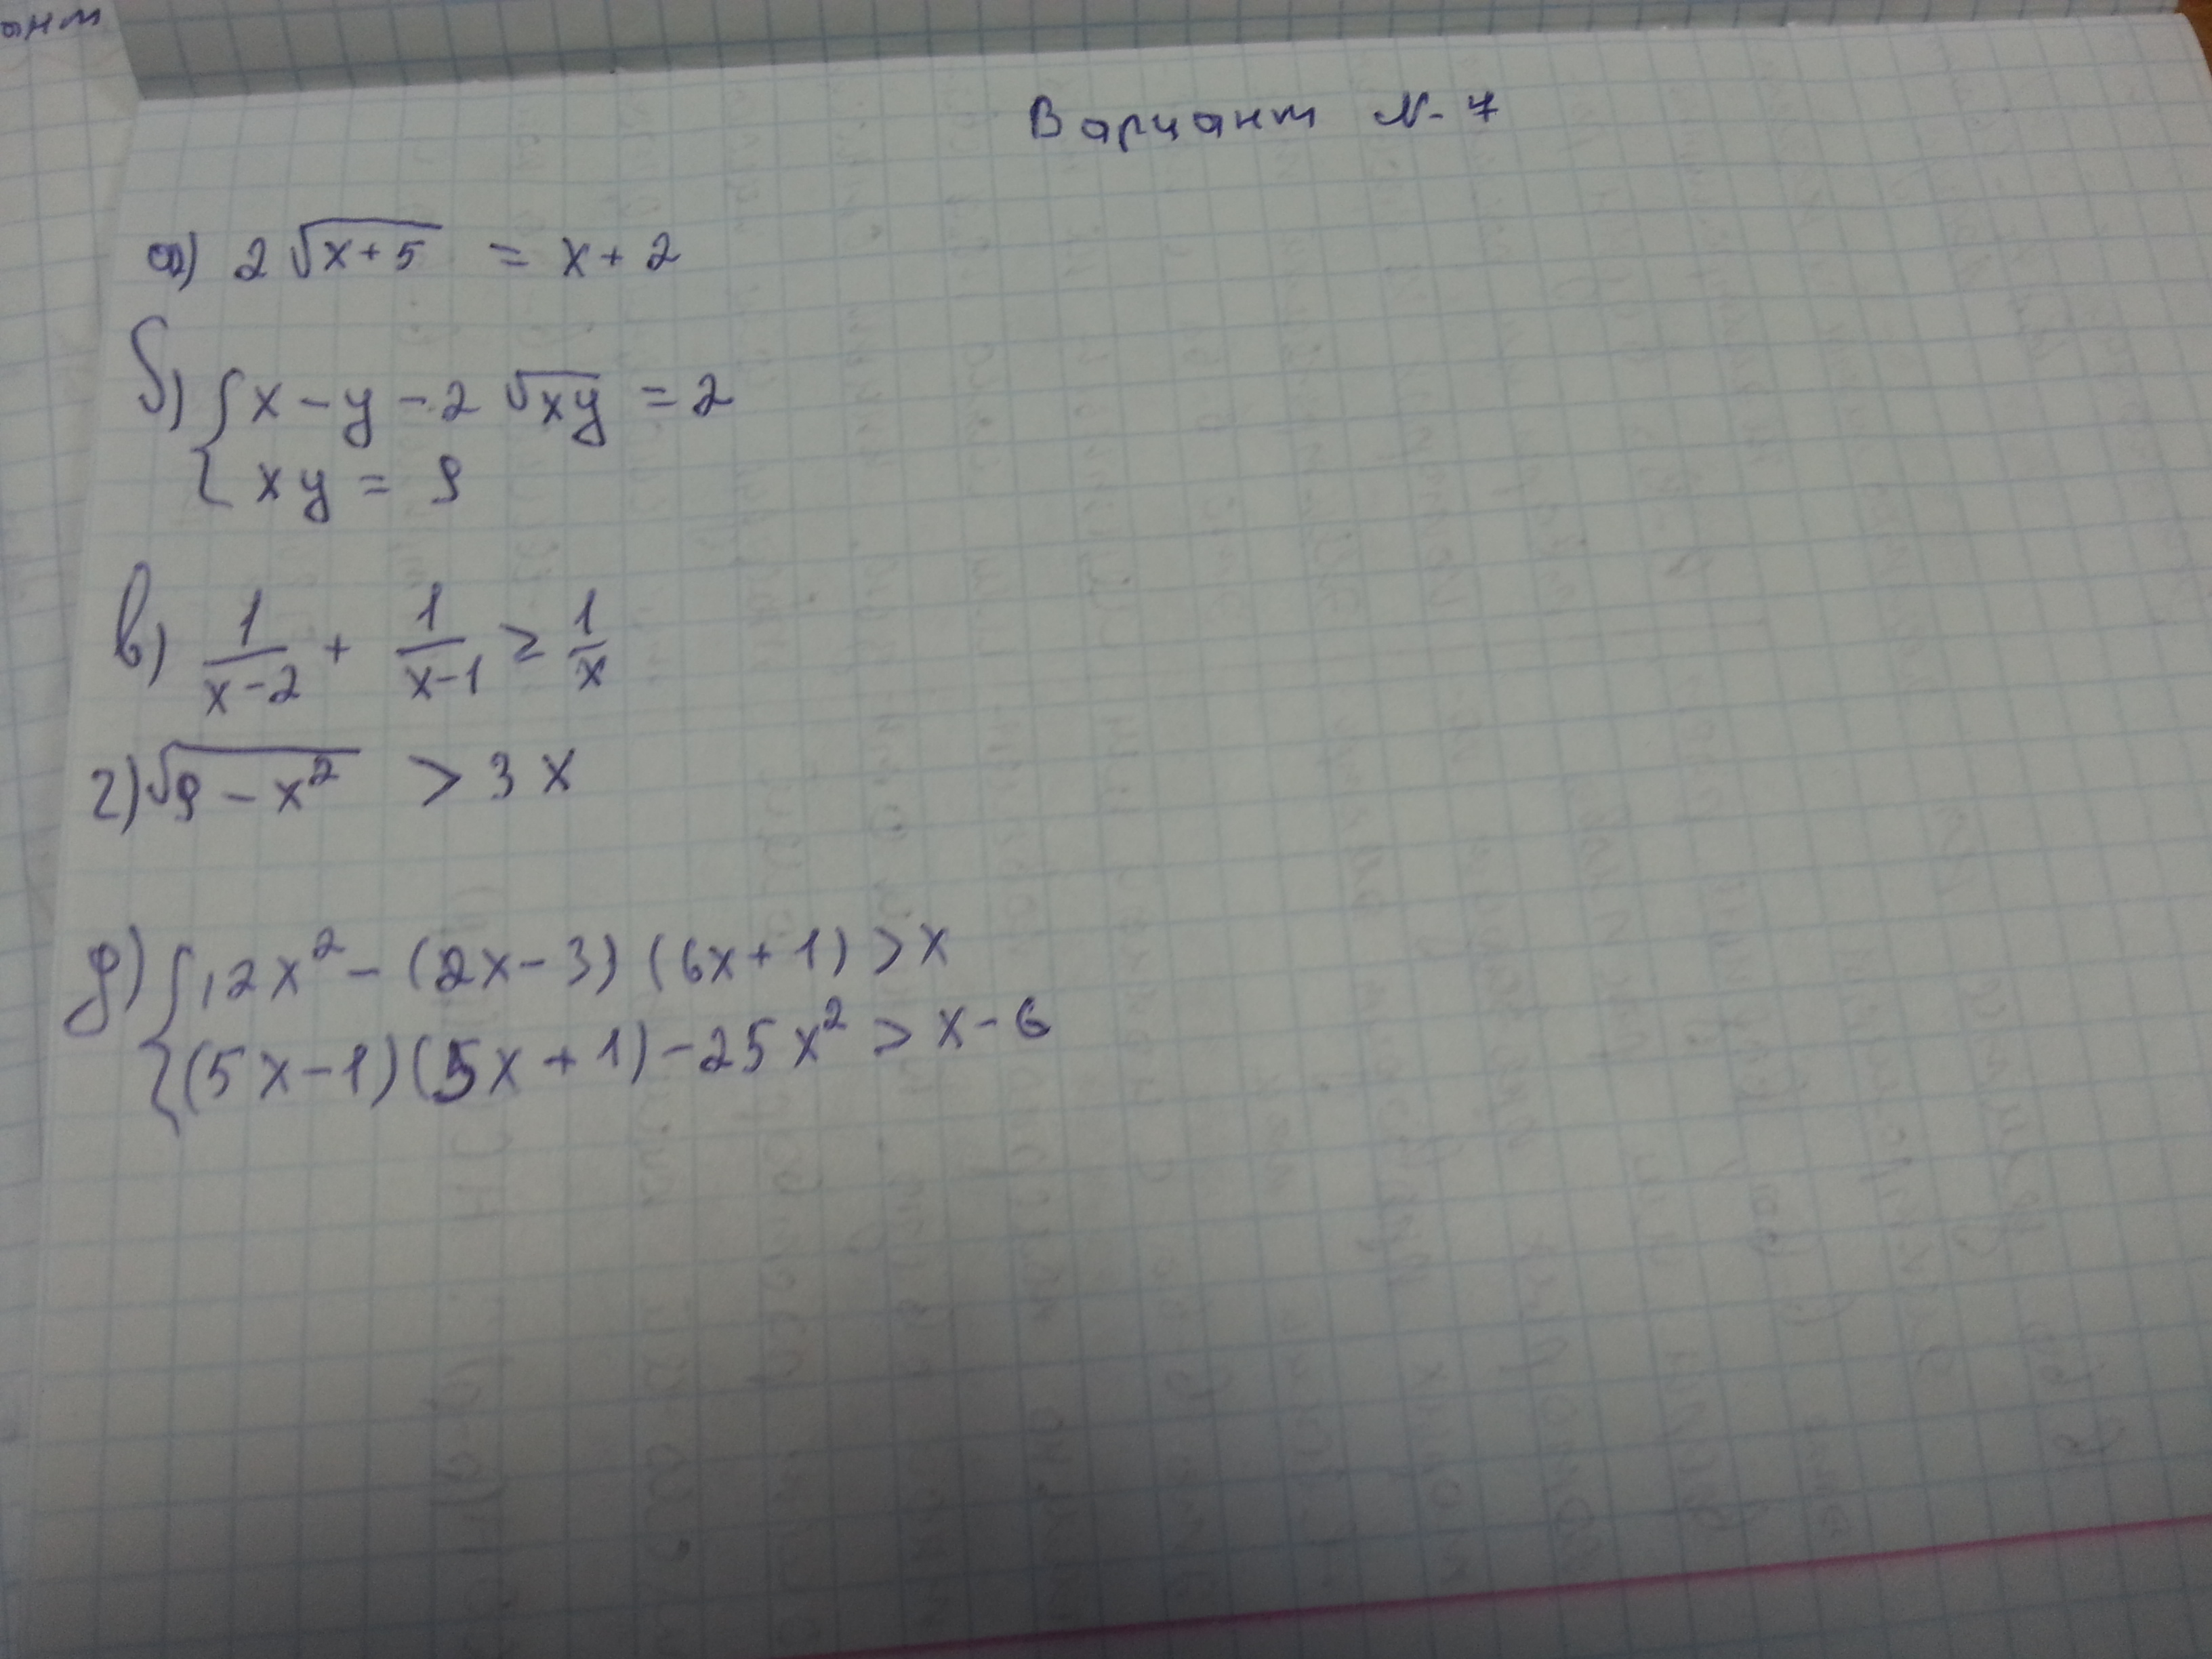 Вариант № 7
а) 2√(x+5) = x+2
б) { x-y-2√(xy) = 2
xy = 9
в) 1/(x-2) + 1/(x-1) ≥ 1/x
г) √(9-x²) > 3x
д) { 12x² - (2x-3)(6x+1) > x
(5x-1)(5x+1) - 25x² > x-6